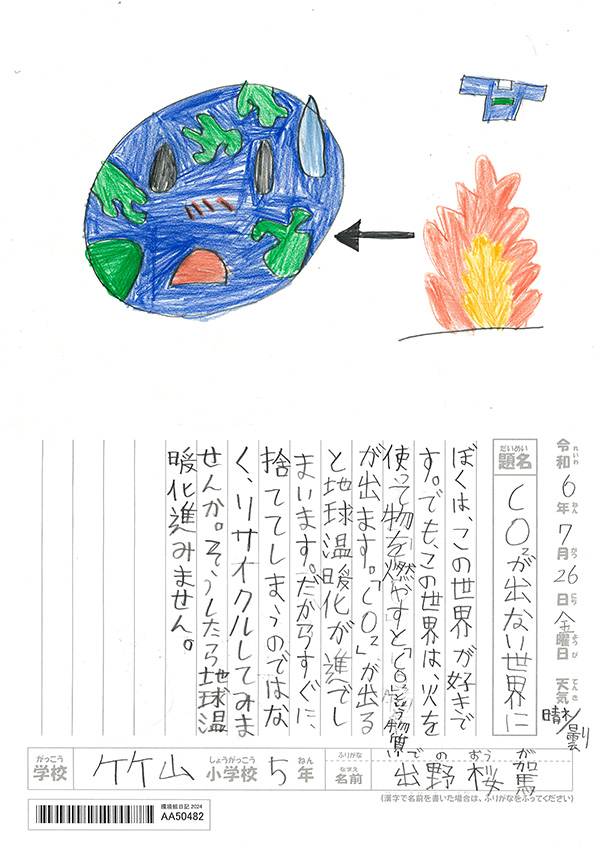 令和れいわ6年ねん7月がつ26日にち金曜日ようび 天気てんき 晴れ/曇り
題名だいめい CO₂が出ない世界に
ぼくは、この世界が好きで
す。でも、この世界は、火を
使って物を燃やすと「CO₂」という物質
が出ます。「CO₂」が出る
と地球温暖化が進でし
まいます。だからすぐに、
捨ててしまうのではな
く、リサイクルしてみま
せんか。そうしたら地球温
暖化進みません。
学校がっこう 竹山 小学校しょうがっこう 5年ねん
ふりがな で の おう が
名前なまえ 出野 桜駕
(漢字で名前を書いた場合は、ふりがなをふってください)
環境絵日記 2024
AA50482